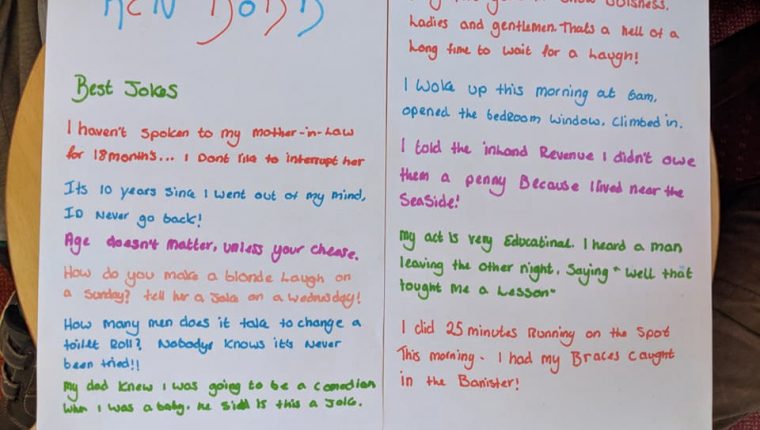 KEN DODD
Best Jokes
I haven't spoken to my mother-in-Law
for 18 month's... I Dont like to interrupt her
Its 10 years Since I went out of my mind,
ID Never go back!
Age doesn't matter, unless your cheese.
How do you make a blonde Laugh on
a Sunday? tell her a Joke on a Wednesday!
How many men does it take to change a
toilet Roll? Nobodys knows it's Never
been tried!!
My dad knew I was going to be a comedian
When I was a baby. He Said Is this a Joke.
Ladies and gentlemen. Thats a hell of a
Long time to wait for a Laugh!
I woke up this morning at 6am,
opened the bedroom window, climbed in.
I told the inland Revenue I didn't owe
them a penny Because I lived near the
SeaSide!
My act is very Educatinal. I heard a man
leaving the other night, Saying "Well that
tought me a Lesson"
I did 25 minutes Running on the Spot
This morning - I had my Braces caught
in the Banister!